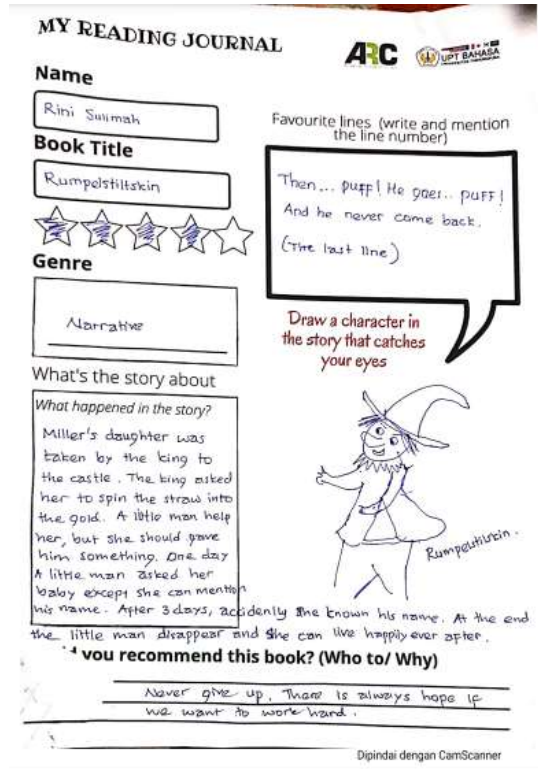 MY READING JOURNAL
ARC
UPT BAHASA
Name
Rini Sulimah
Book Title
Rumpelstiltskin
Genre
Narrative
What's the story about
What happened in the story?
Miller's daughter was
taken by the king to
the castle. The king asked
her to spin the straw into
the gold. A little man help
her, but she should gave
him something. One day
A little man asked her
baby except she can mention
his name. After 3 days, accidenly she known his name. At the end
the little man disappear and she can live happily ever after.
Favourite lines (write and mention
the line number)
Then... puff! He goes.. puff!
And he never come back.
(The last line)
Draw a character in
the story that catches
your eyes
Rumpelstilskin.
you recommend this book? (Who to/ Why)
Never give up. There is always hope if
we want to work hard.
Dipindai dengan CamScanner